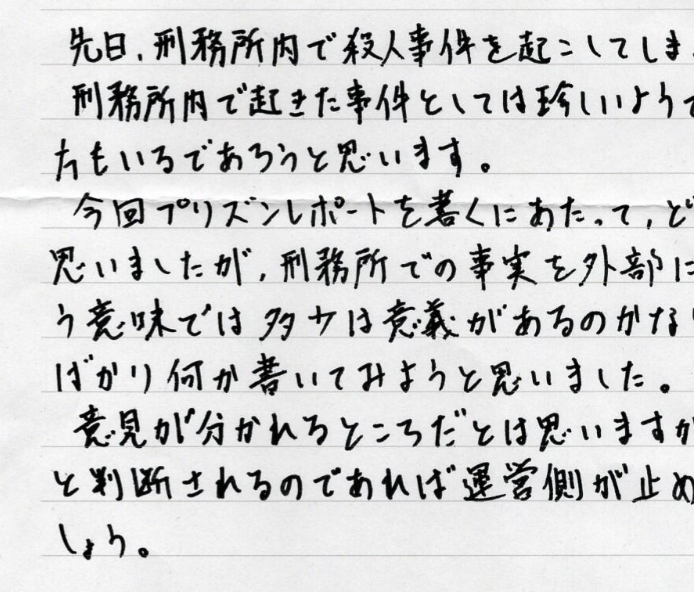 先日、刑務所内で殺人事件を起こしてしま
刑務所内で起きた事件としては珍しいようで
方もいるであろうと思います。
今回プリズンレポートを書くにあたって、ど
思いましたが、刑務所での事実を外部に
う意味では多少は意義があるのかな
ばかり何か書いてみようと思いました。
意見が分かれるところだとは思いますが
と判断されるのであれば運営側が止め
しょう。